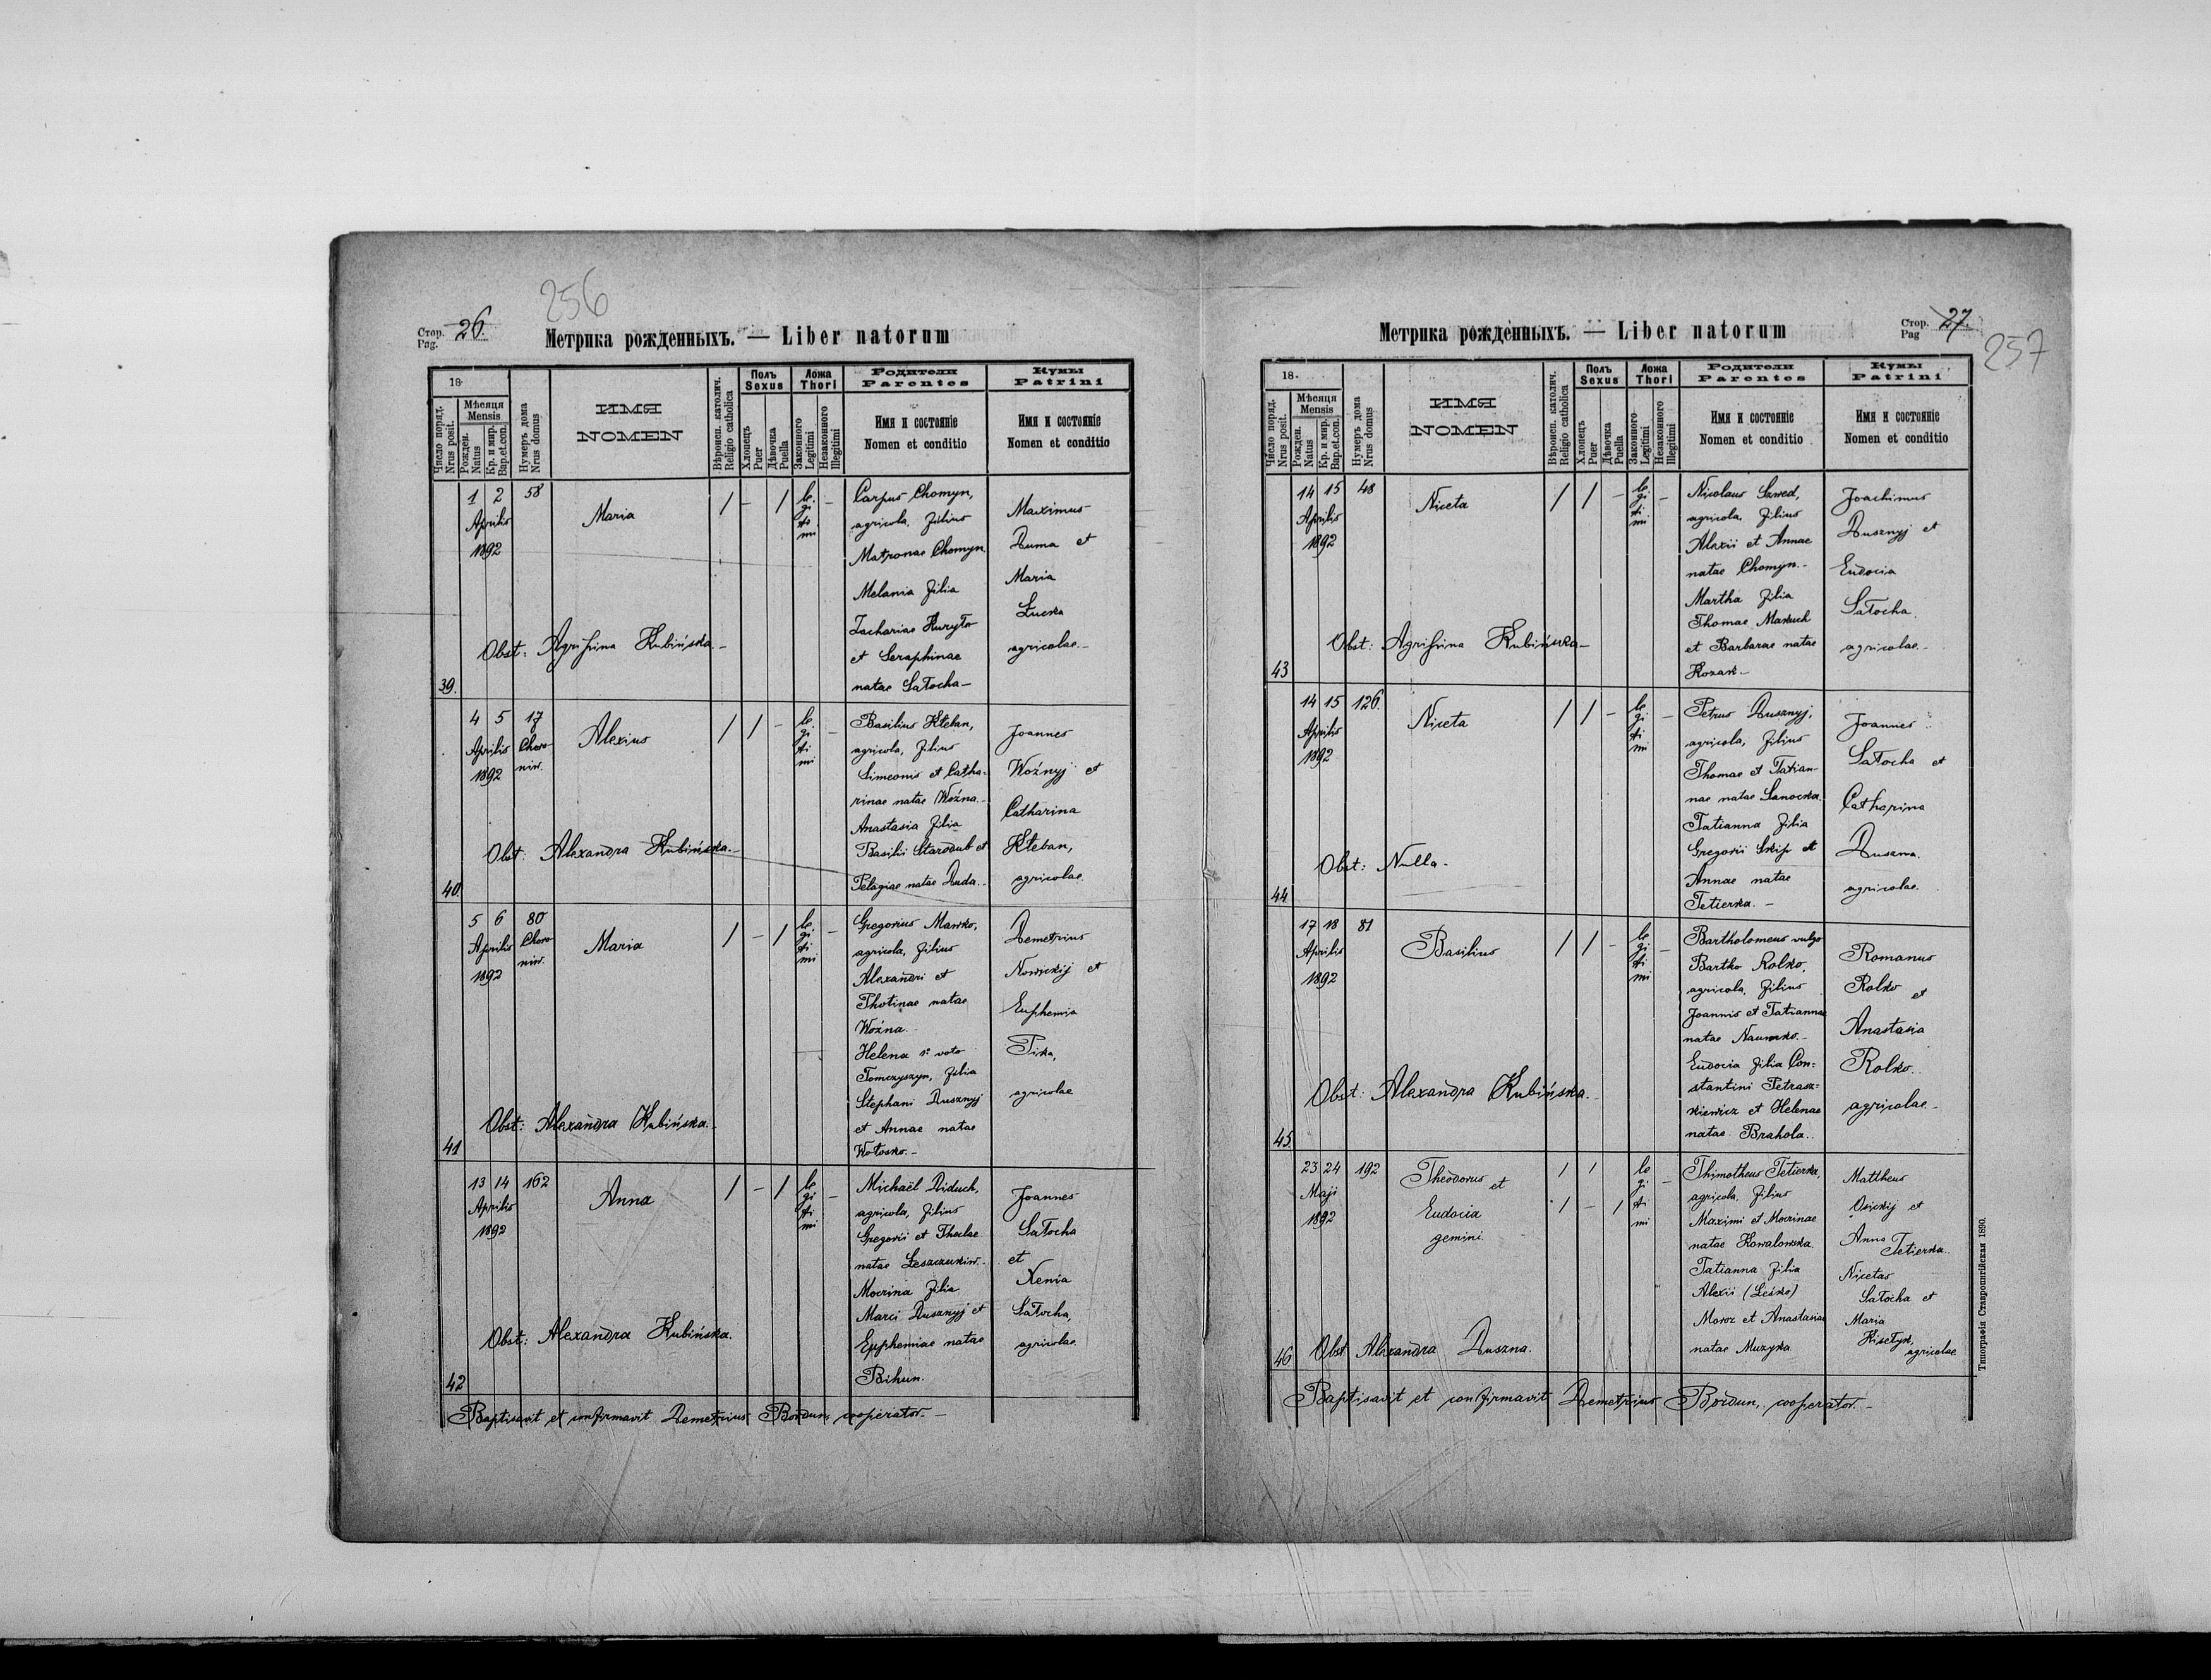 256
Стор. Pag. 26.
Метрика рожденныхъ. — Liber natorum
18
Число поряд. Nrus posit.
Мѣсяця Mensis
Рожден. Natus
Кр. и мир. Bap.et.con.
Нумеръ дома Nrus domus
ИМЯ NOMEN
Вѣроисп. католич. Religio catholica
Полъ Sexus
Хлопецъ Puer
Дѣвочка Puella
Ложа Thori
Законного Legitimi
Незаконного Illegitimi
Родители Parentes
Имя и состоянiе Nomen et conditio
Кумы Patrini
Имя и состоянiе Nomen et conditio
39.
1 2 Aprilis 1892
58
Maria
/ - /
le. gi. ti. mi -
Carpus Chomyn,
agricola, filius
Matronae Chomyn.
Melania filia
Zachariae Kuryło
et Seraphinae
natae Sałocha -
Maximus
Duma et
Maria
Łucka
agricolae. -
Obst: Agrifina Kubińska. -
40.
4 5 Aprilis 1892
17 Choroniw.
Alexius
/ / -
le. gi. ti. mi -
Basilius Kteban,
agricola, filius
Simeonis et Catha-
rinae natae Woźna. -
Anastasia filia
Basilii Starodub et
Pelagiae natae Duda. -
Joannes
Woźnyj et
Catharina
Kteban,
agricolae
Obst: Alexandra Kubińska. -
41
5 6 Aprilis 1892
80 Choroniw.
Maria
/ - /
le. gi. ti. mi -
Gregorius Mawko,
agricola, filius
Alexandri et
Photinae natae
Woźna. -
Helena 1º voto
Tomczyszyn, filia
Stephani Dusznyj
et Annae natae
Wołosko. -
Demetrius
Nowickij et
Euphemia
Pika,
agricolae
Obst: Alexandra Kubińska. -
42
13 14 Aprilis 1892
162
Anna
/ - /
le gi ti mi -
Michaël Diduch,
agricola, filius
Gregorii et Theclae
natae Leszczukiw. -
Mocrina filia
Marci Dusznyj et
Epphemiae natae
Bihun.
Joannes
Sałocha
et
Xenia
Sałocha,
agricolae.
Obst: Alexandra Kubińska.
Baptisavit et confirmavit Demetrius Bordun, cooperator. -
Стор. Pag 27.
257
Метрика рожденныхъ. — Liber natorum
18
Число поряд. Nrus posit.
Мѣсяця Mensis
Рожден. Natus
Кр. и мир. Bap.et.con.
Нумеръ дома Nrus domus
ИМЯ NOMEN
Вѣроисп. католич. Religio catholica
Полъ Sexus
Хлопецъ Puer
Дѣвочка Puella
Ложа Thori
Законного Legitimi
Незаконного Illegitimi
Родители Parentes
Имя и состоянiе Nomen et conditio
Кумы Patrini
Имя и состоянiе Nomen et conditio
43
14 15 Aprilis 1892
48
Niceta
/ / -
le. gi ti mi -
Nicolaus Szwed,
agricola, filius
Alexii et Annae
natae Chomyn. -
Martha filia
Thomae Makuch
et Barbarae natae
Kozak -
Joachimus
Dusznyj et
Eudocia
Sałocha
agricolae. -
Obst: Agrifina Kubińska -
44
14 15 Aprilis 1892
126.
Niceta
/ / -
le gi. ti mi -
Petrus Dusznyj,
agricola, filius
Thomae et Tatian-
nae natae Sanocka.
Tatianna filia
Gregorii Skip et
Annae natae
Tetierka. -
Joannes
Sałocha et
Catharina
Duszna.
agricolae.
Obst: Nulla. -
45.
17 18 Aprilis 1892
81
Basilius
/ / -
le gi ti mi -
Bartholomeus vulgo
Bartko Rolko,
agricola, filius
Joannis et Tatiannae
natae Naumko. -
Eudocia filia Con-
stantini Petrasz-
kiewicz et Helenae
natae Brahola. .
Romanus
Rolko et
Anastasia
Rolko.
agricolae. -
Obst: Alexandra Kubińska. -
46
23 24 Maji 1892
192
Theodorus et
Eudocia
gemini.
/ /
/ - /
le gi ti mi -
Thimotheus Tetierka,
agricola, filius
Maximi et Mocrinae
natae Kowalowska.
Tatianna filia
Alexii (Leśko)
Moroz et Anastasiae
natae Muzyka
Mattheus
Osickij et
Anna
Tetierka.
Nicetas
Sałocha et
Maria
Kisełyk,
agricolae
Obst Alexandra Duszna.
Baptisavit et confirmavit Demetrius Bordun, cooperator. -
Типографiя Ставропигiйская 1890.